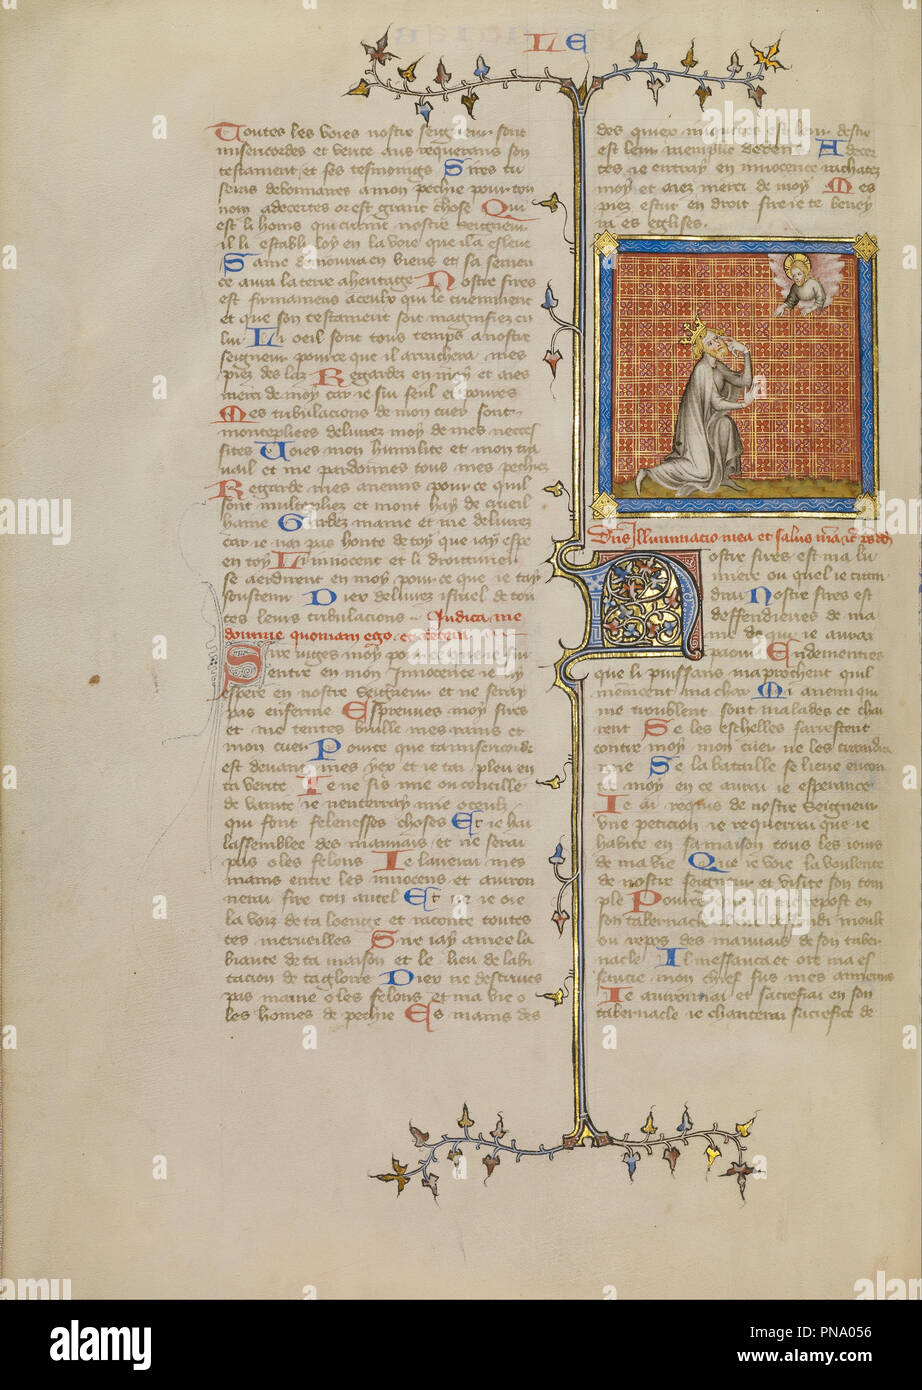 LE
Toutes les voies nostre seigneur sont
misericordes et verite aus requerans son
testament et ses tesmoings Sires tu
seras debonnaires a mon pechie pour ton
nom adecertes or est grant chose Qui
est li homs qui craint nostre seigneur
il li establi loy en la voie que il a esleue
Same demourra en biens et sa semen
ce aura la terre a heritage Nostre sires
est firmamens a ceulx qui le criement
et que son testament soit magnifiez en
lui Li oeil sont tous temps a nostre
seigneur pource que il arrachera mes
piez des laz Regardez en moy et aies
merci de moy car ie sui seul et poures
Mes tribulacions de mon cuer sont
monteplies deliurez moy de mes neces
sites Voies mon humilite et mon tra
uail et me pardonnes tous mes pechiez
Regarde mes anemis pour ce quil
sont multepliez et mont hay de crueil
haine Gardez mame et me deliurez
car ie nai pas honte de toy que iay espe
en toy Li innocent et li droiturier
se aerdirent en moy pour ce que ie tay
soustenu Dieu deliurez israel de tou
tes leurs tribulacions Iudica me
domine quoniam ego
Sire iuges moy pour ce que ie sui
entre en mon innocence ie ay
espere en nostre seigneur et ne seray
pas enferme Esprouues moy sires
et me temptes brulle mes rains et
mon cuer Pource que ta misericorde
est deuant mes yex et ie tai pleu en
ta verite Ie ne sis mie ou conseille
de vanite ie nenterray mie o ceulz
qui font felonesses choses Et ie hai
lassemblee des mauuais et ne serai
pas o les felons Ie laueray mes
mains entre les innocens et auiron
nerai sire ton autel Et ie oie
la voiz de ta loenge et raconte toutes
tes merueilles Sire iay amee la
biaute de ta maison et le lieu de labi
tacion de ta gloire Dieu ne destruies
pas mame o les felons et ma vie o
les homes de pechie Es mains des
des quiex iniquites est leur destre
est leur remplie de dons Adecer
tes ie entray en innocence rachatez
moy et aiez merci de moy Mes
piez estut en droit sire ie te beney
rai es eglises.
Dominus Illuminacio mea et salus mea
Nostre sires est ma lu
miere ou quel ie crain
drai Nostre sires est
deffendierres de ma
vie de qui ie aurai
paour Endementies
que li puissans maprochent quil
menicent ma char Mi anemi qui
me troublent sont malades et chai
rent Se les eschelles sarrestent
contre moy mon cuer ne les craindra
mie Se la bataille se lieue encon
tre moy en ce aurai ie esperance
Ie ai requis de nostre seigneur
vne peticion ie requerrai que ie
habite en sa maison tous les iours
de ma vie Que ie voie la voulente
de nostre seigneur et visite son tem
ple Pource que il me repost en
son tabernacle il me deffendi moult
ou repos des mauuais de son taber
nacle Il messauca et ore ma es
saucie mon chief sus mes anemis
Ie auironnai et sacrefiai en son
tabernacle ie chanterai sacrefice de
alamy
a
alamy
Image ID: PNA056
www.alamy.com